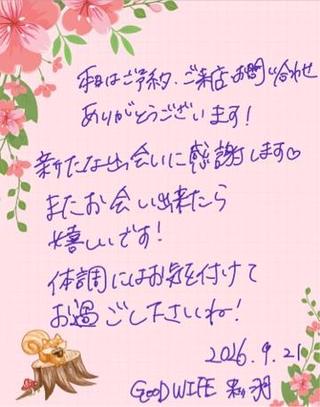 本日はご予約、ご来店、お問い合わせ
ありがとうございます!
新たな出会いに感謝します♡
またお会い出来たら
嬉しいです!
体調にはお気を付けて
お過ごし下さいね!
2026.9.21
GOOD WIFE